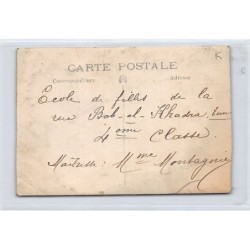 CARTE POSTALE
Correspondance Adresse
Ecole de filles de la
rue Bab-el-Khadra
4eme Classe.
Maîtresse: Mme Montagnié